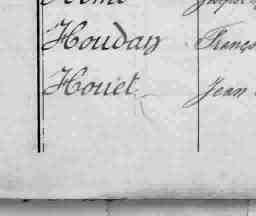 Houdan Franço
Houet Jean